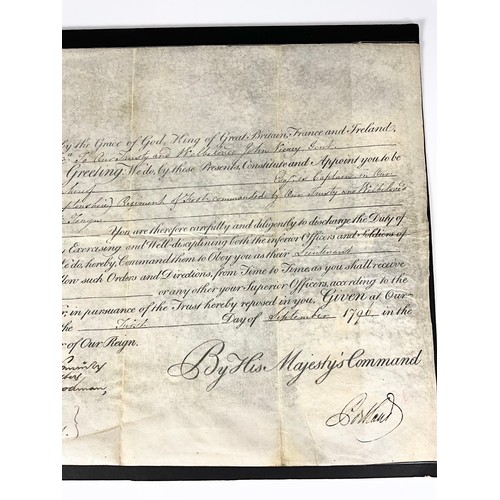 by the Grace of God, King of Great Britain, France and Ireland,
To Our Trusty and Wellbeloved John Gent
Greeting. We do, by these Presents, Constitute and Appoint you to be
Captain in Our
Regiment of Foot commanded by Our Trusty and Wellbeloved
You are therefore carefully and diligently to discharge the Duty of
Exercising and Well-disciplining both the inferior Officers and Soldiers of
do, hereby, Command them to Obey you as their Lieutenant
such Orders and Directions, from Time to Time as you shall receive
or any other your Superior Officers, according to the
in pursuance of the Trust hereby reposed in you. Given at Our
the First Day of September 1796 in the
of Our Reign.
By His Majesty's Command
Portland